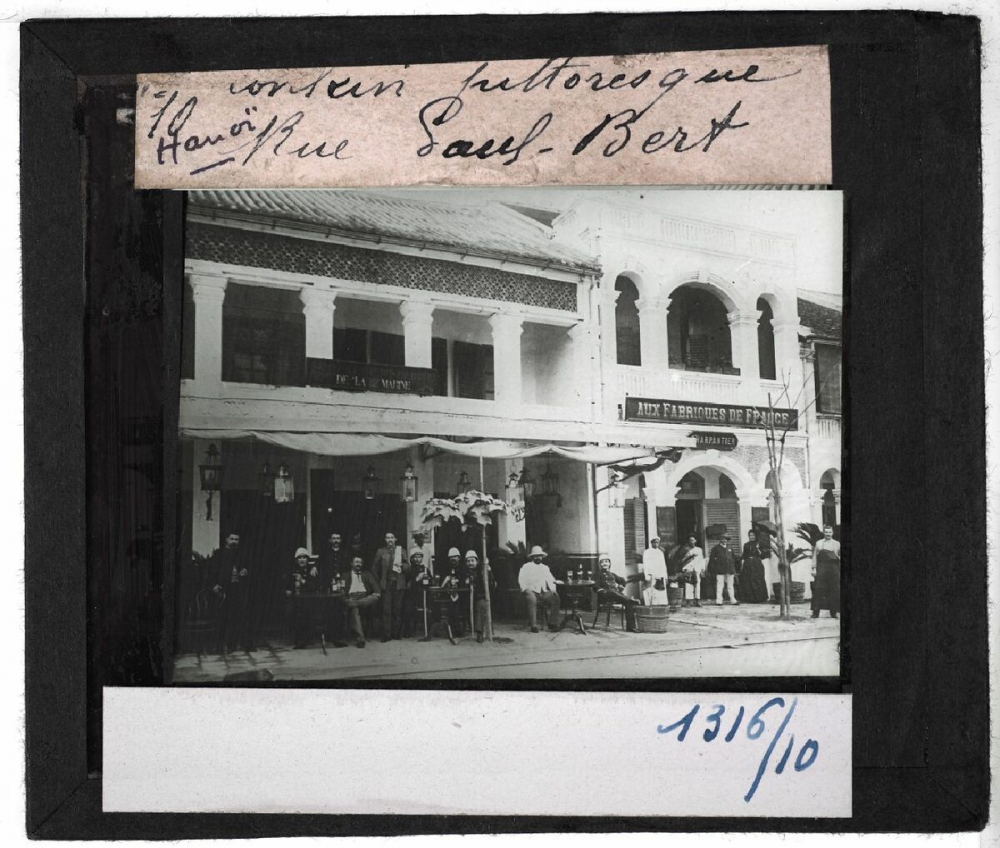 Tonkin pittoresque
10
Hanoï Rue Paul-Bert
DE LA MARINE
AUX FABRIQUES DE FRANCE
CHARPANTIER
1316/10